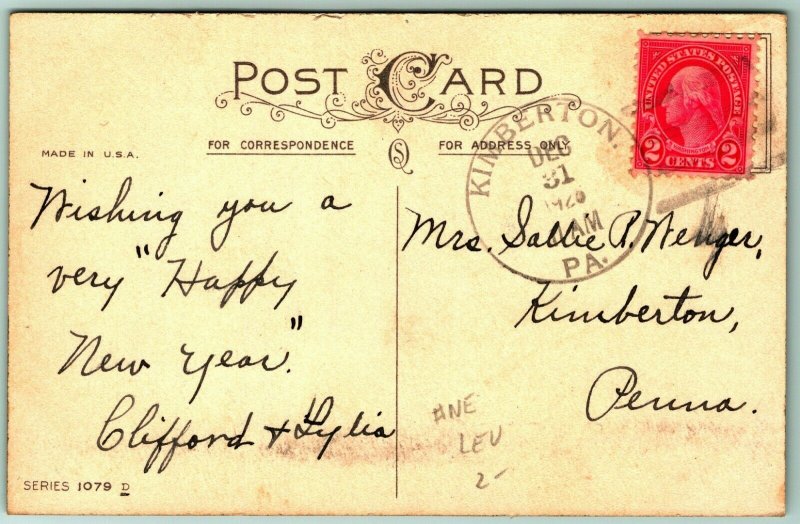 POST CARD
FOR CORRESPONDENCE
FOR ADDRESS ONLY
MADE IN U.S.A.
UNITED STATES POSTAGE
WASHINGTON
2 CENTS 2
KIMBERTON.
DEC
31
1926
AM
PA.
Wishing you a
very "Happy
New Year."
Clifford & Lylia
Mrs. Sallie P. Wenger,
Kimberton,
Penna.
LEV
2-
SERIES 1079 D